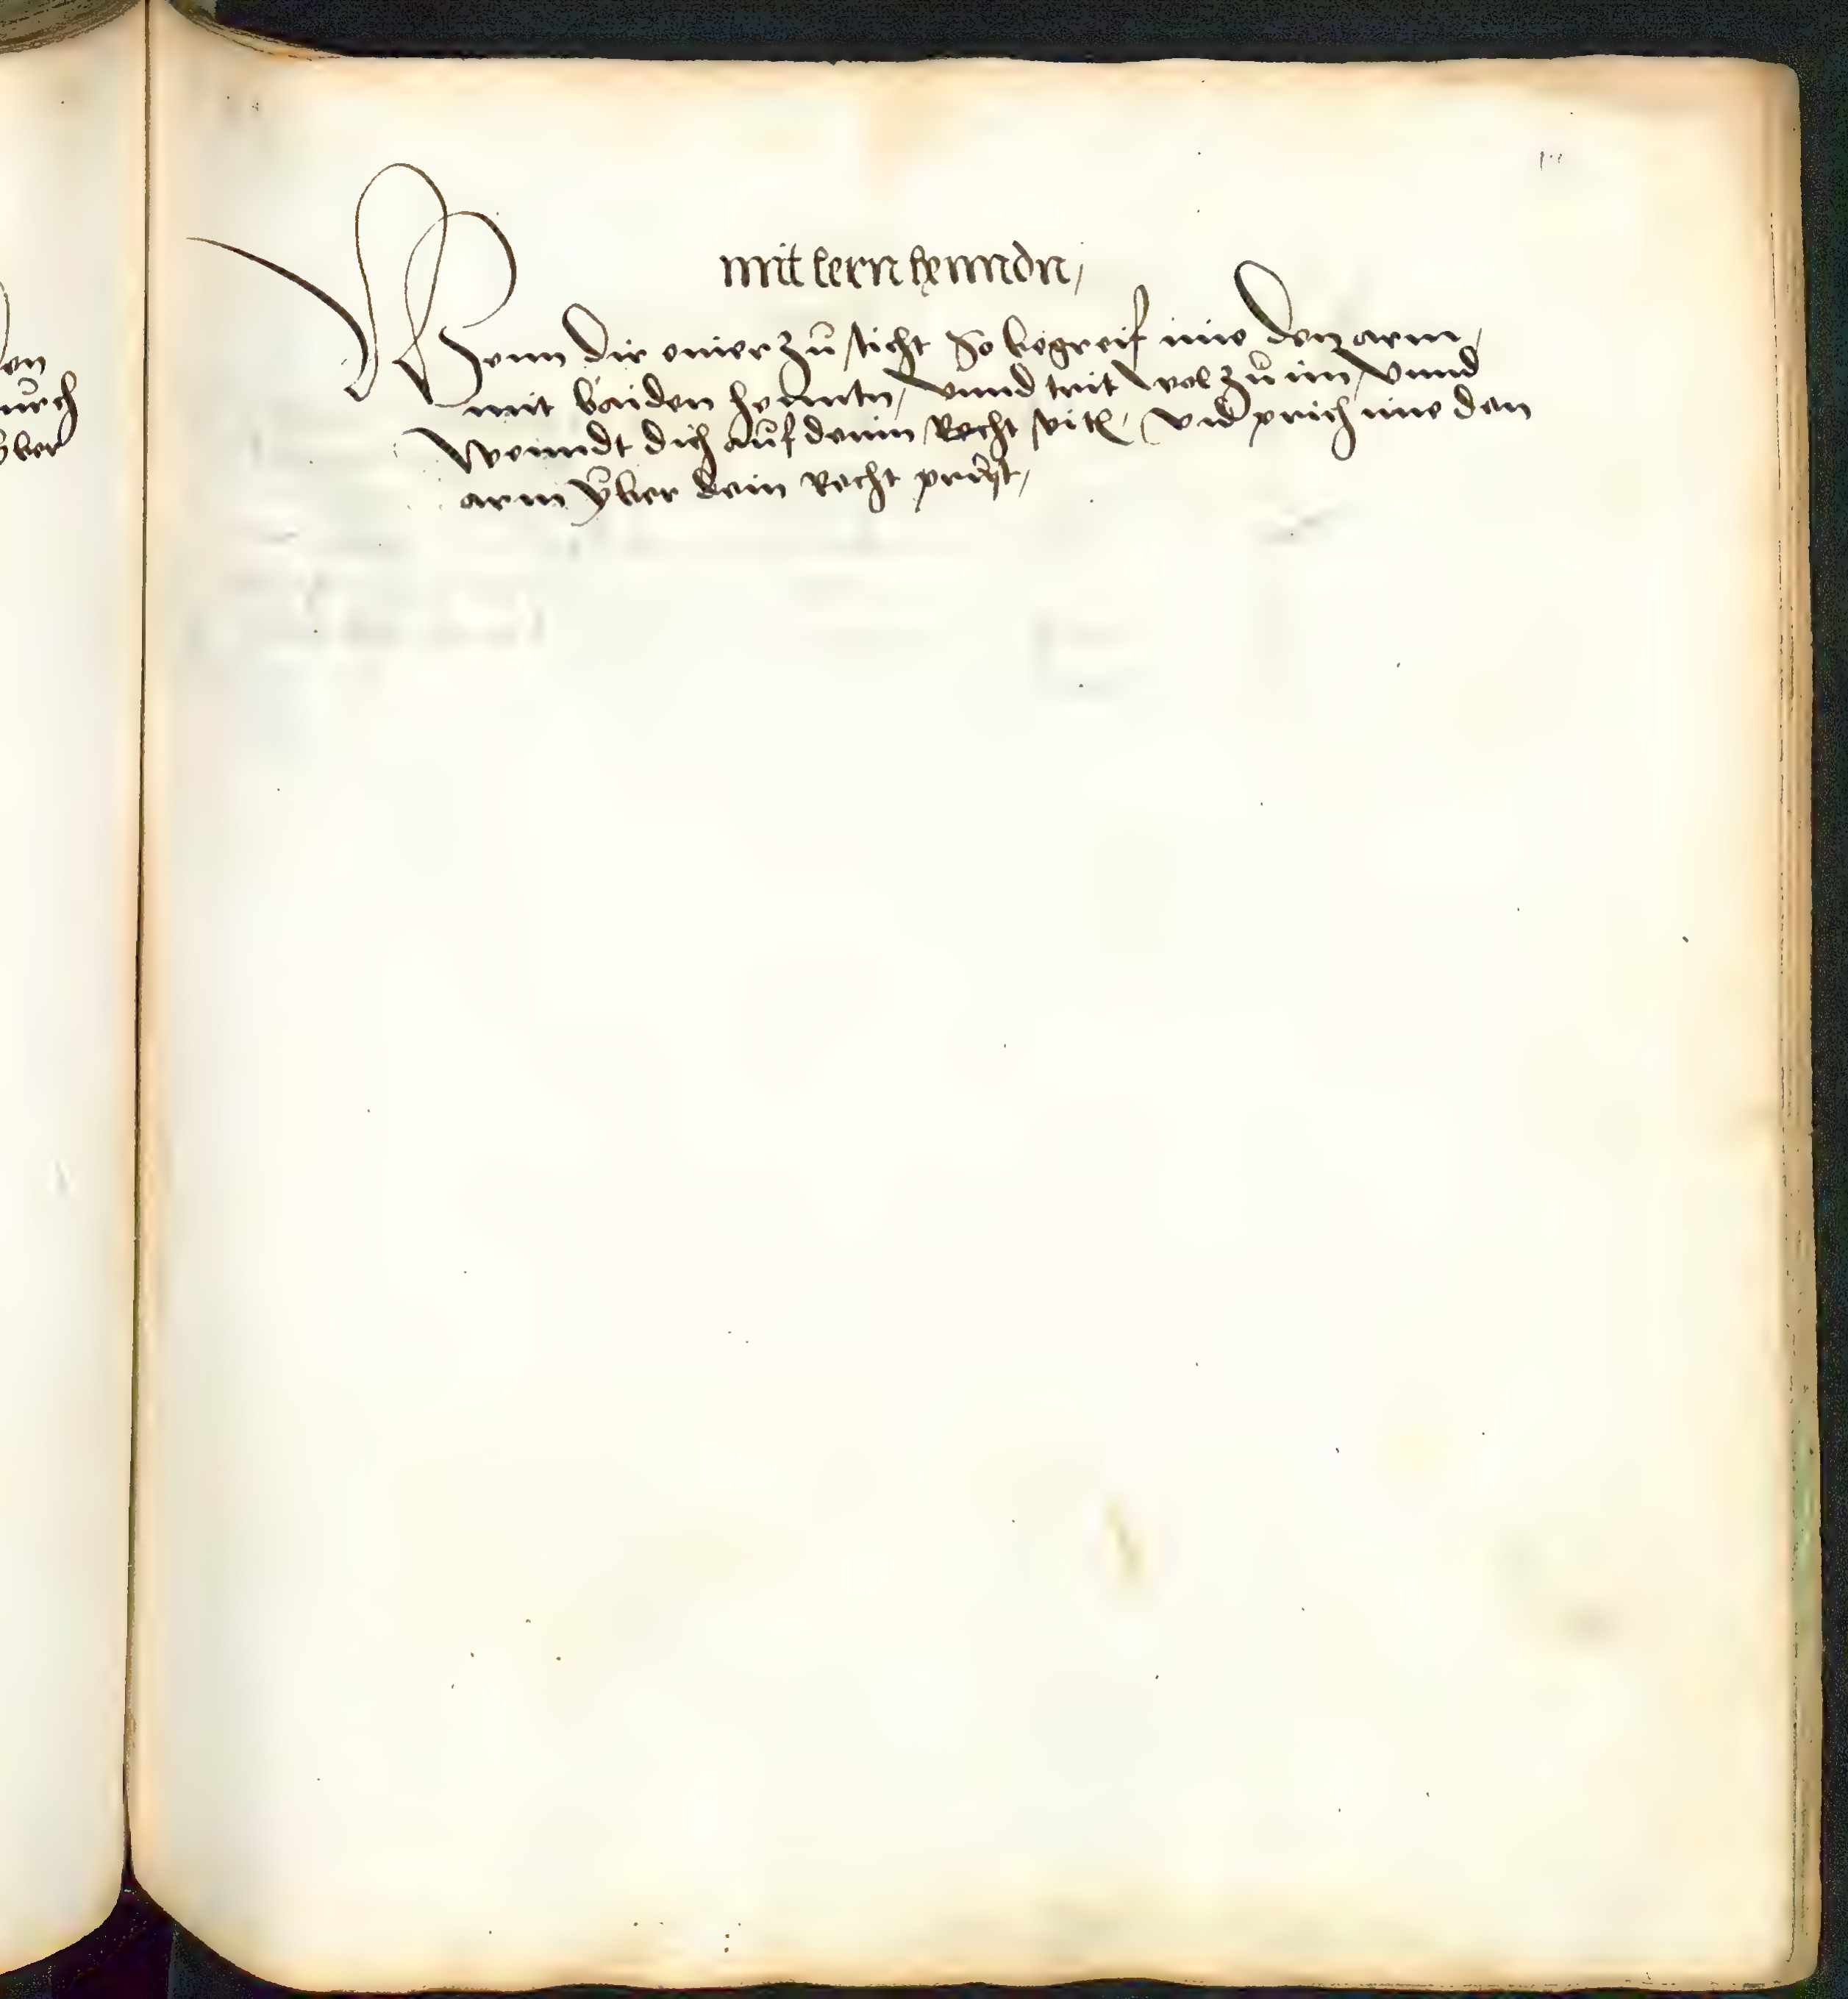 mit lern henndn,
Wenn dir einer zů sticht So begreif ime den arm,
mit baiden henntn, vnnd trit wol zů im, vnnd
wenndt dich aůf denin Recht seitt, vnd prich ime den
arm v̊ber dein recht prüst,
en
ůrch
v̊ber